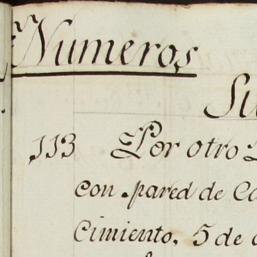 Numeros
113 Por otro
con pared de
Cimiento, 5 de